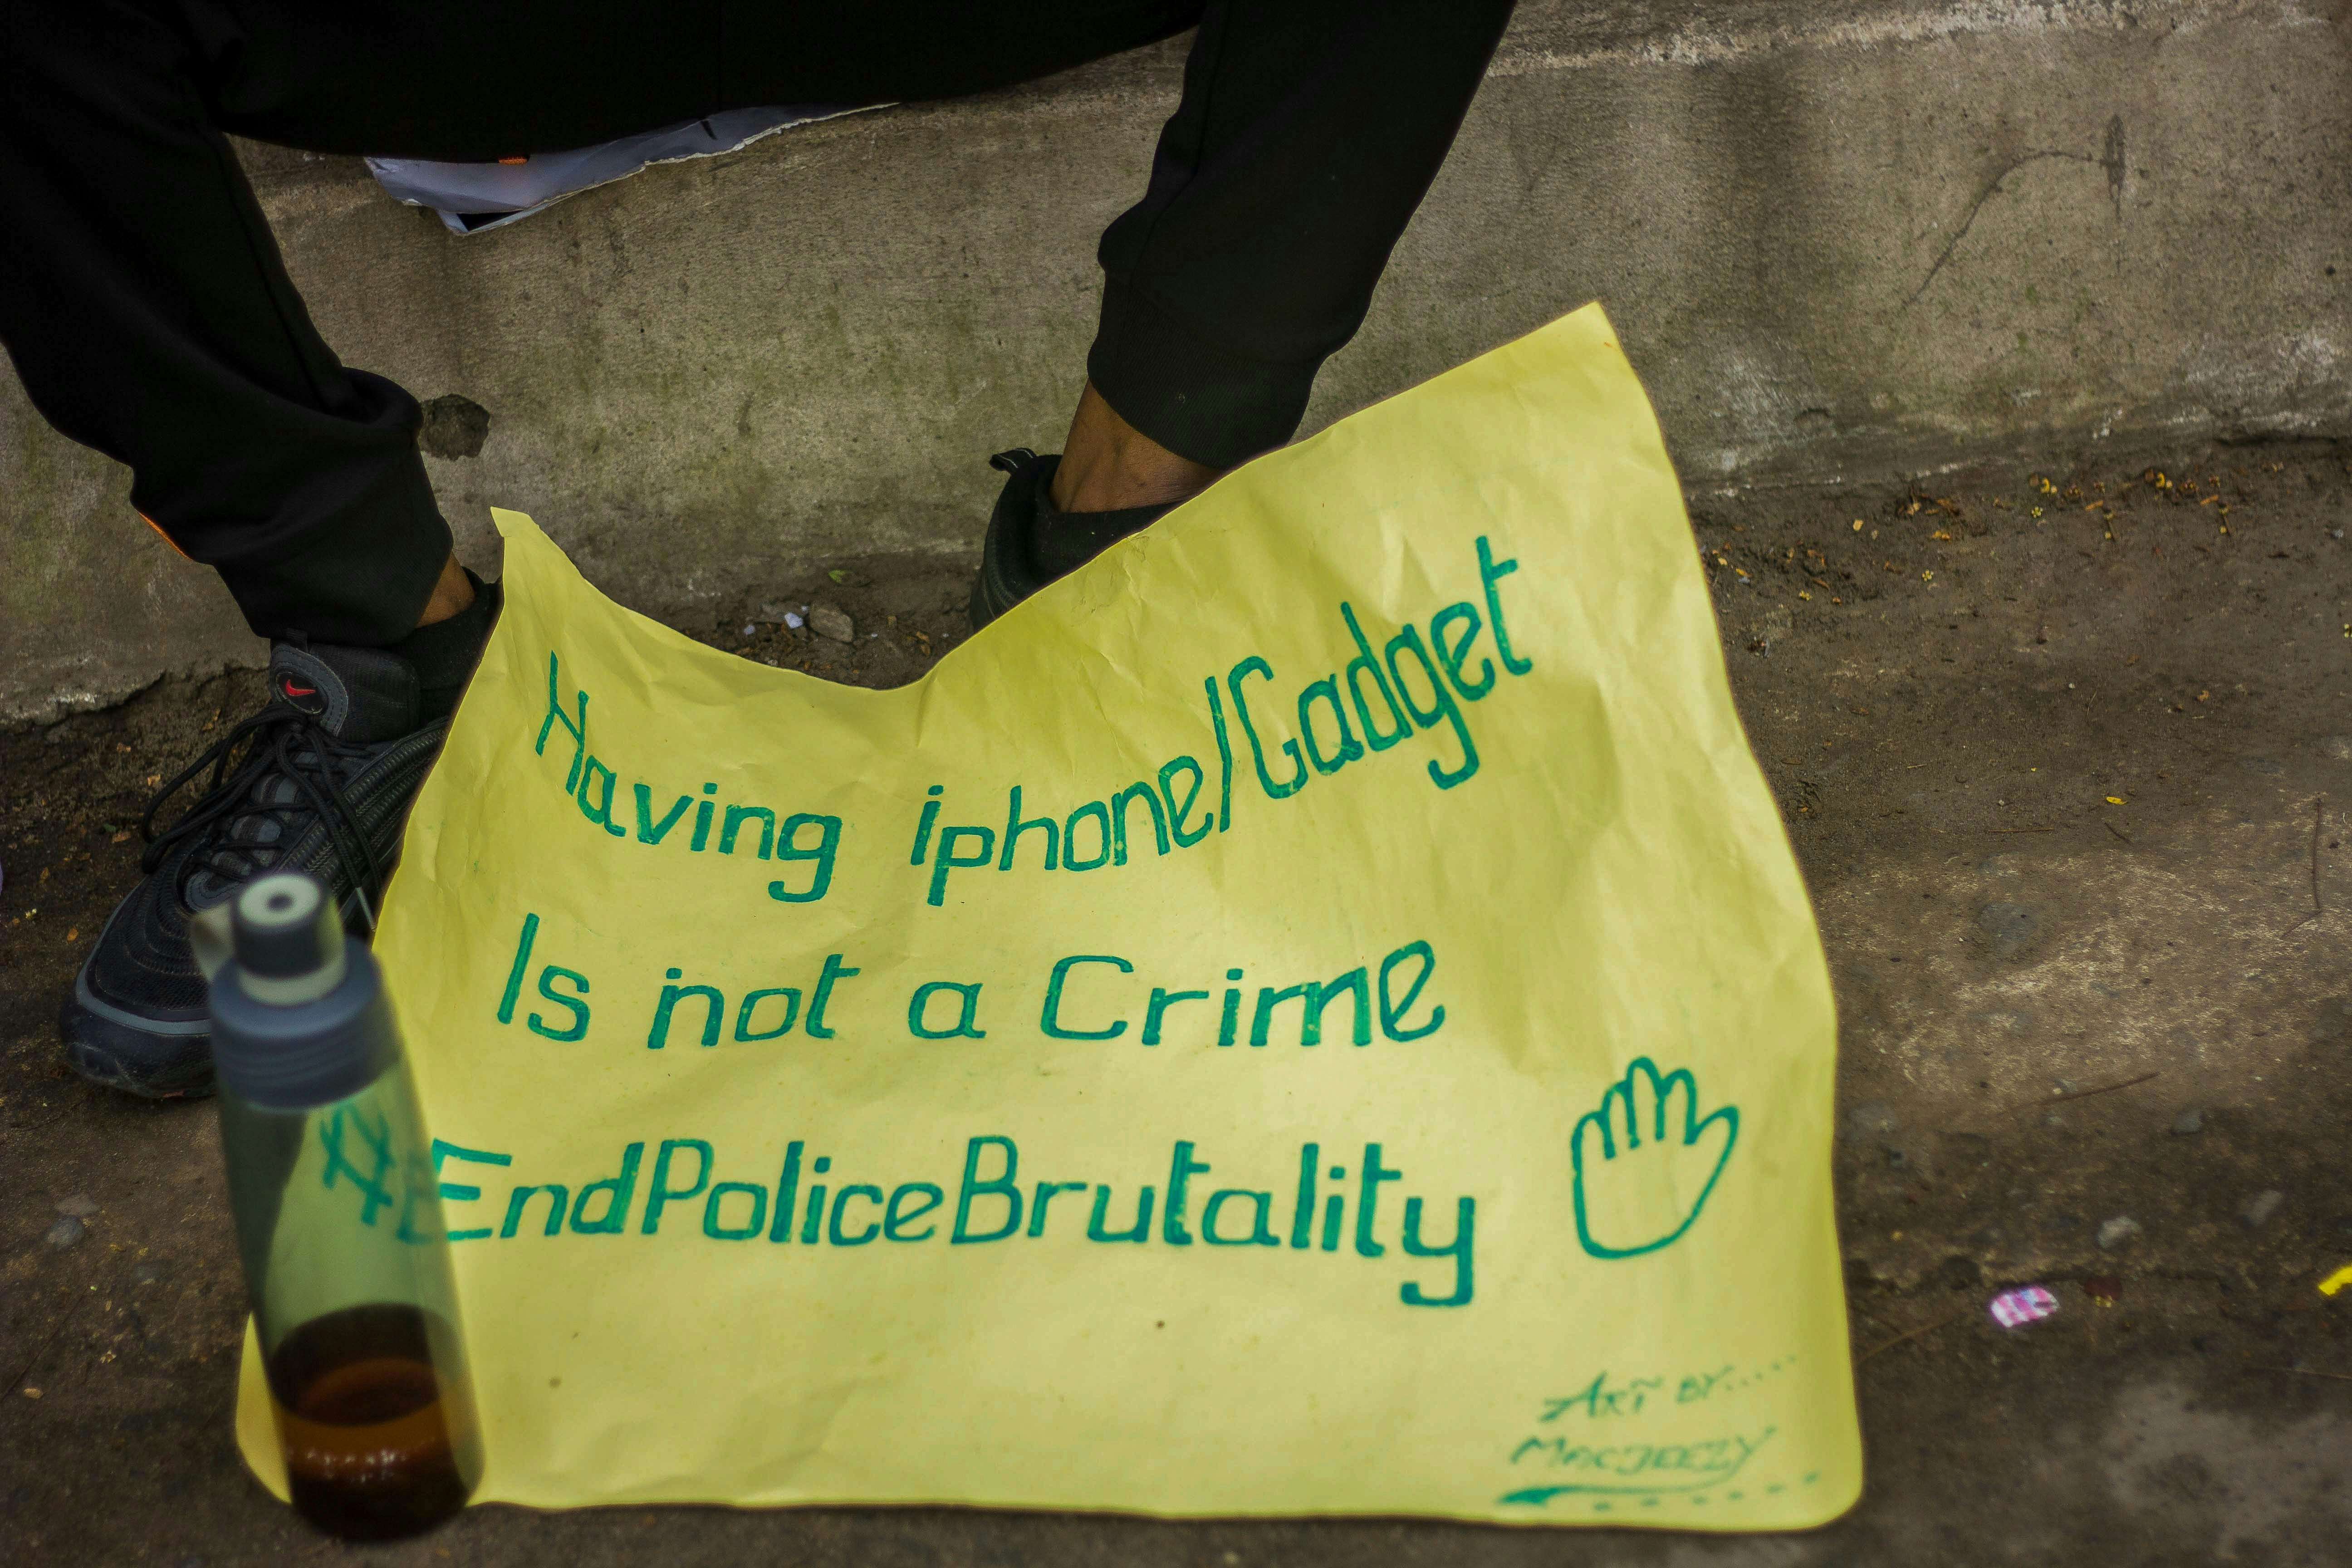 Having iphone/Gadget
Is not a Crime
#EndPoliceBrutality
ART BY.....
MACJEEZY